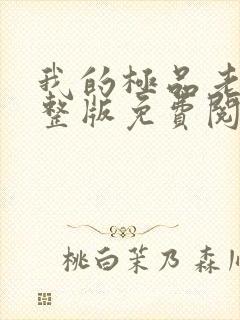 我的極品老
整版免費閱
桃白茉乃 森川